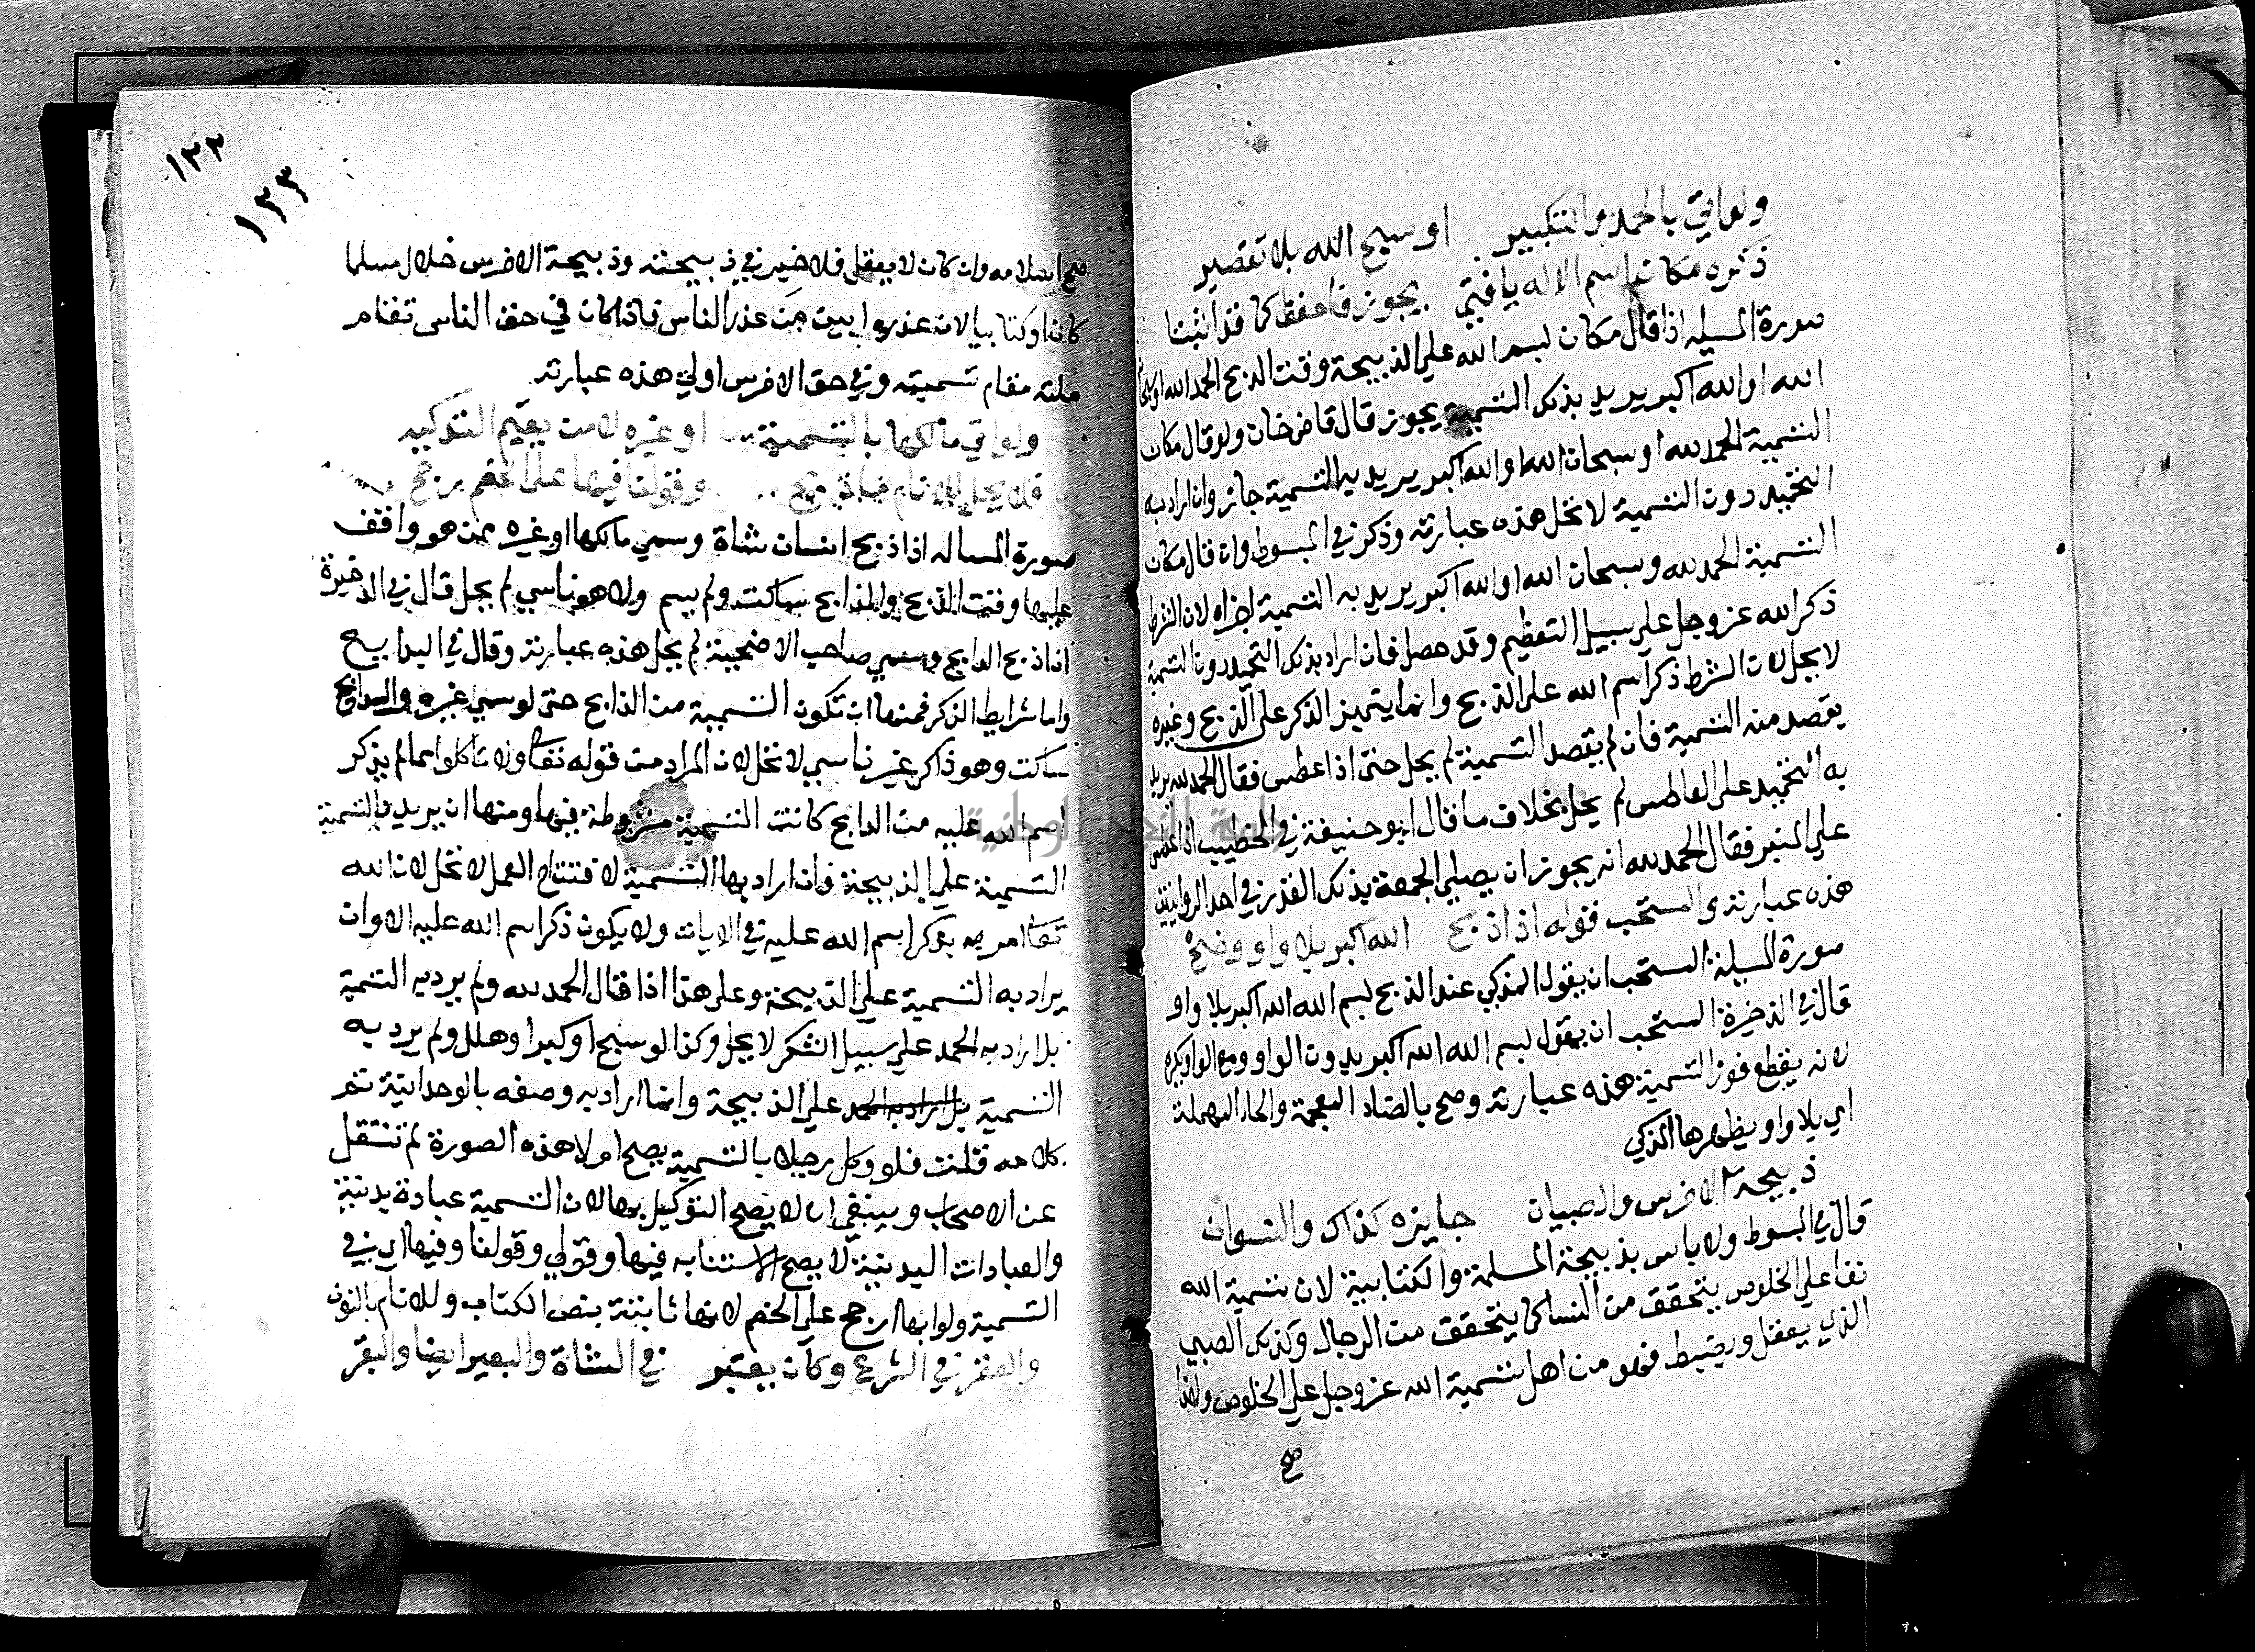 ولو اتى بالحمد والتكبير او سبح الله بلا تقصير
ذكره مكان اسم الاله يا فتى يجوز فاحفظ كما قد اثبتا
صورة المسيله اذا قال مكان بسم الله على الذبيحة وقت الذبح الحمد لله او سبحان
الله او الله اكبر يريد بذلك التسمية يجوز قال قاضي خان ولو قال مكان
التسمية الحمد لله او سبحان الله او الله اكبر يريد به التسمية جاز وان اراد به
التحميد دون التسمية لا تحل هذه عبارته وذكر في المبسوط وان قال مكان
التسمية الحمد لله وسبحان الله او الله اكبر يريد به التسمية اجزاه لان الشرط
ذكر الله عز وجل على سبيل التعظيم وقد حصل فان اراد بذلك التحميد دون التسمية
لا يحل لان الشرط ذكر اسم الله على الذبح وانما يتميز الذكر على الذبح وغيره
يقصد منه التسمية فان لم يقصد التسمية لم يحل حتى اذا عطس فقال الحمد لله يريد
به التحميد على العاطس لم يحل بخلاف ما قال ابو حنيفة في الخطيب اذا عطس
على المنبر فقال الحمد لله انه يجوز ان يصلي الجمعة بذلك القدر في احد الروايتين
هذه عبارته والمستحب قوله اذا ذبح الله اكبر بلا واو وضح
صورة المسيلة المستحب ان يقول المذكي عند الذبح بسم الله الله اكبر بلا واو
قال في الذخيرة المستحب ان يقول بسم الله الله اكبر بدون الواو ومع الواو يكره
لانه يقطع فور التسمية هذه عبارته وضح بالضاد المعجمة والحاء المهملة
اي بلا واو يظهرها المذكي
ذبيحة الاخرس والصبيان جايزه كذاك والنسوان
قال في المبسوط ولا باس بذبيحة المسلمة والكتابية لان تسمية الله
تعا على الخلوص يتحقق من النسا كما يتحقق من الرجال وكذلك الصبي
الذي يعقل ويضبط فهو من اهل تسمية الله عز وجل على الخلوص ولهذا
صح
١٣٢
١٣٣
صح اسلامه وان كان لا يعقل فلا خير في ذبيحته وذبيحة الاخرس حلال مسلما
كان او كتابيا لان عذره ابين من عذر الناس فاذا كان في حق الناس تقام
ملته مقام تسميته وفي حق الاخرس اولى هذه عبارته
ولو اتى مالكها بالتسمية او غيره لا من يقيم التذكيه
فلا يحل وقولنا فيها على الخصم رجح
صورة المساله اذا ذبح انسان شاة وسمى مالكها او غيره ممن هو واقف
عليها وقت الذبح والذابح ساكت ولم يسم ولا هو ناسي لم يحل قال في الذخيرة
اذا ذبح الذابح وسمى صاحب الاضحية لم يحل هذه عبارته وقال في البدايع
واما شرايط الذكر فمنها ان تكون التسمية من الذابح حتى لو سمى غيره والذابح
ساكت وهو ذاكر غير ناسي لا تحل لان المراد من قوله تعا ولا تاكلوا مما لم يذكر
اسم الله عليه من الذابح كانت التسمية مشروطة فيها ومنها ان يريد بالتسمية
التسمية على الذبيحة فان اراد بها التسمية لافتتاح العمل لا تحل لان الله
تعا امر بذكر اسم الله عليه في الايات ولا يكون ذكر اسم الله عليه الا وان
يراد به التسمية على الذبيحة وعلى هذا اذا قال الحمد لله ولم يرد به التسمية
بل اراد به الحمد على سبيل الشكر لا يحل وكذا لو سبح او كبر او هلل ولم يرد به
التسمية بل اراد به الحمد على الذبيحة وانما اراد به وصفه بالوحدانية تم
كلامه قلت فلو وكل رجلا بالتسمية يصح ام لا هذه الصورة لم تنتقل
عن الاصحاب وينبغي ان لا يصح التوكيل بها لان التسمية عبادة بدنية
والعبادات البدنية لا يصح الاستنابه فيها وقولي وقولنا وفيها اي في
التسمية ولوابها ارجح على الخصم لانها ثابتة بنص الكتاب وللانام بالنون
والعقر في الشرع وكان يعتبر في الشاة والبعير ايضا والبقر